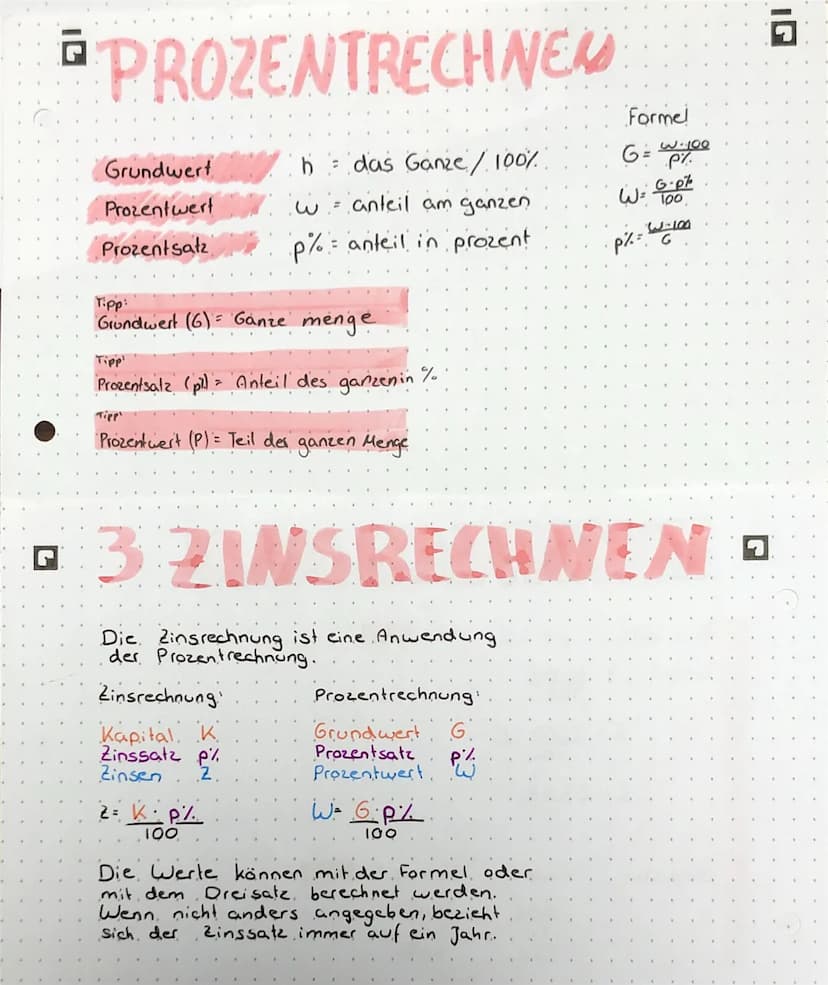 PROZENTRECHNEN
Formel
Grundwert h = das Ganze / 100% G = w·100/p%
Prozentwert w = anteil am ganzen W = G·p%/100
Prozentsatz p% = anteil in prozent p% = w·100/G
Tipp:
Grundwert (G) = Ganze menge
Tipp:
Prozentsatz (p%) = Anteil des ganzen in %
Tipp:
Prozentwert (P) = Teil der ganzen Menge
3 ZINSRECHNEN
Die Zinsrechnung ist eine Anwendung
der Prozentrechnung.
Zinsrechnung: Prozentrechnung:
Kapital K Grundwert G
Zinssatz p% Prozentsatz p%
Zinsen Z Prozentwert W
Z = K · p% / 100 W = G · p% / 100
Die Werte können mit der Formel oder
mit dem Dreisatz berechnet werden.
Wenn nicht anders angegeben, bezieht
sich der Zinssatz immer auf ein Jahr.